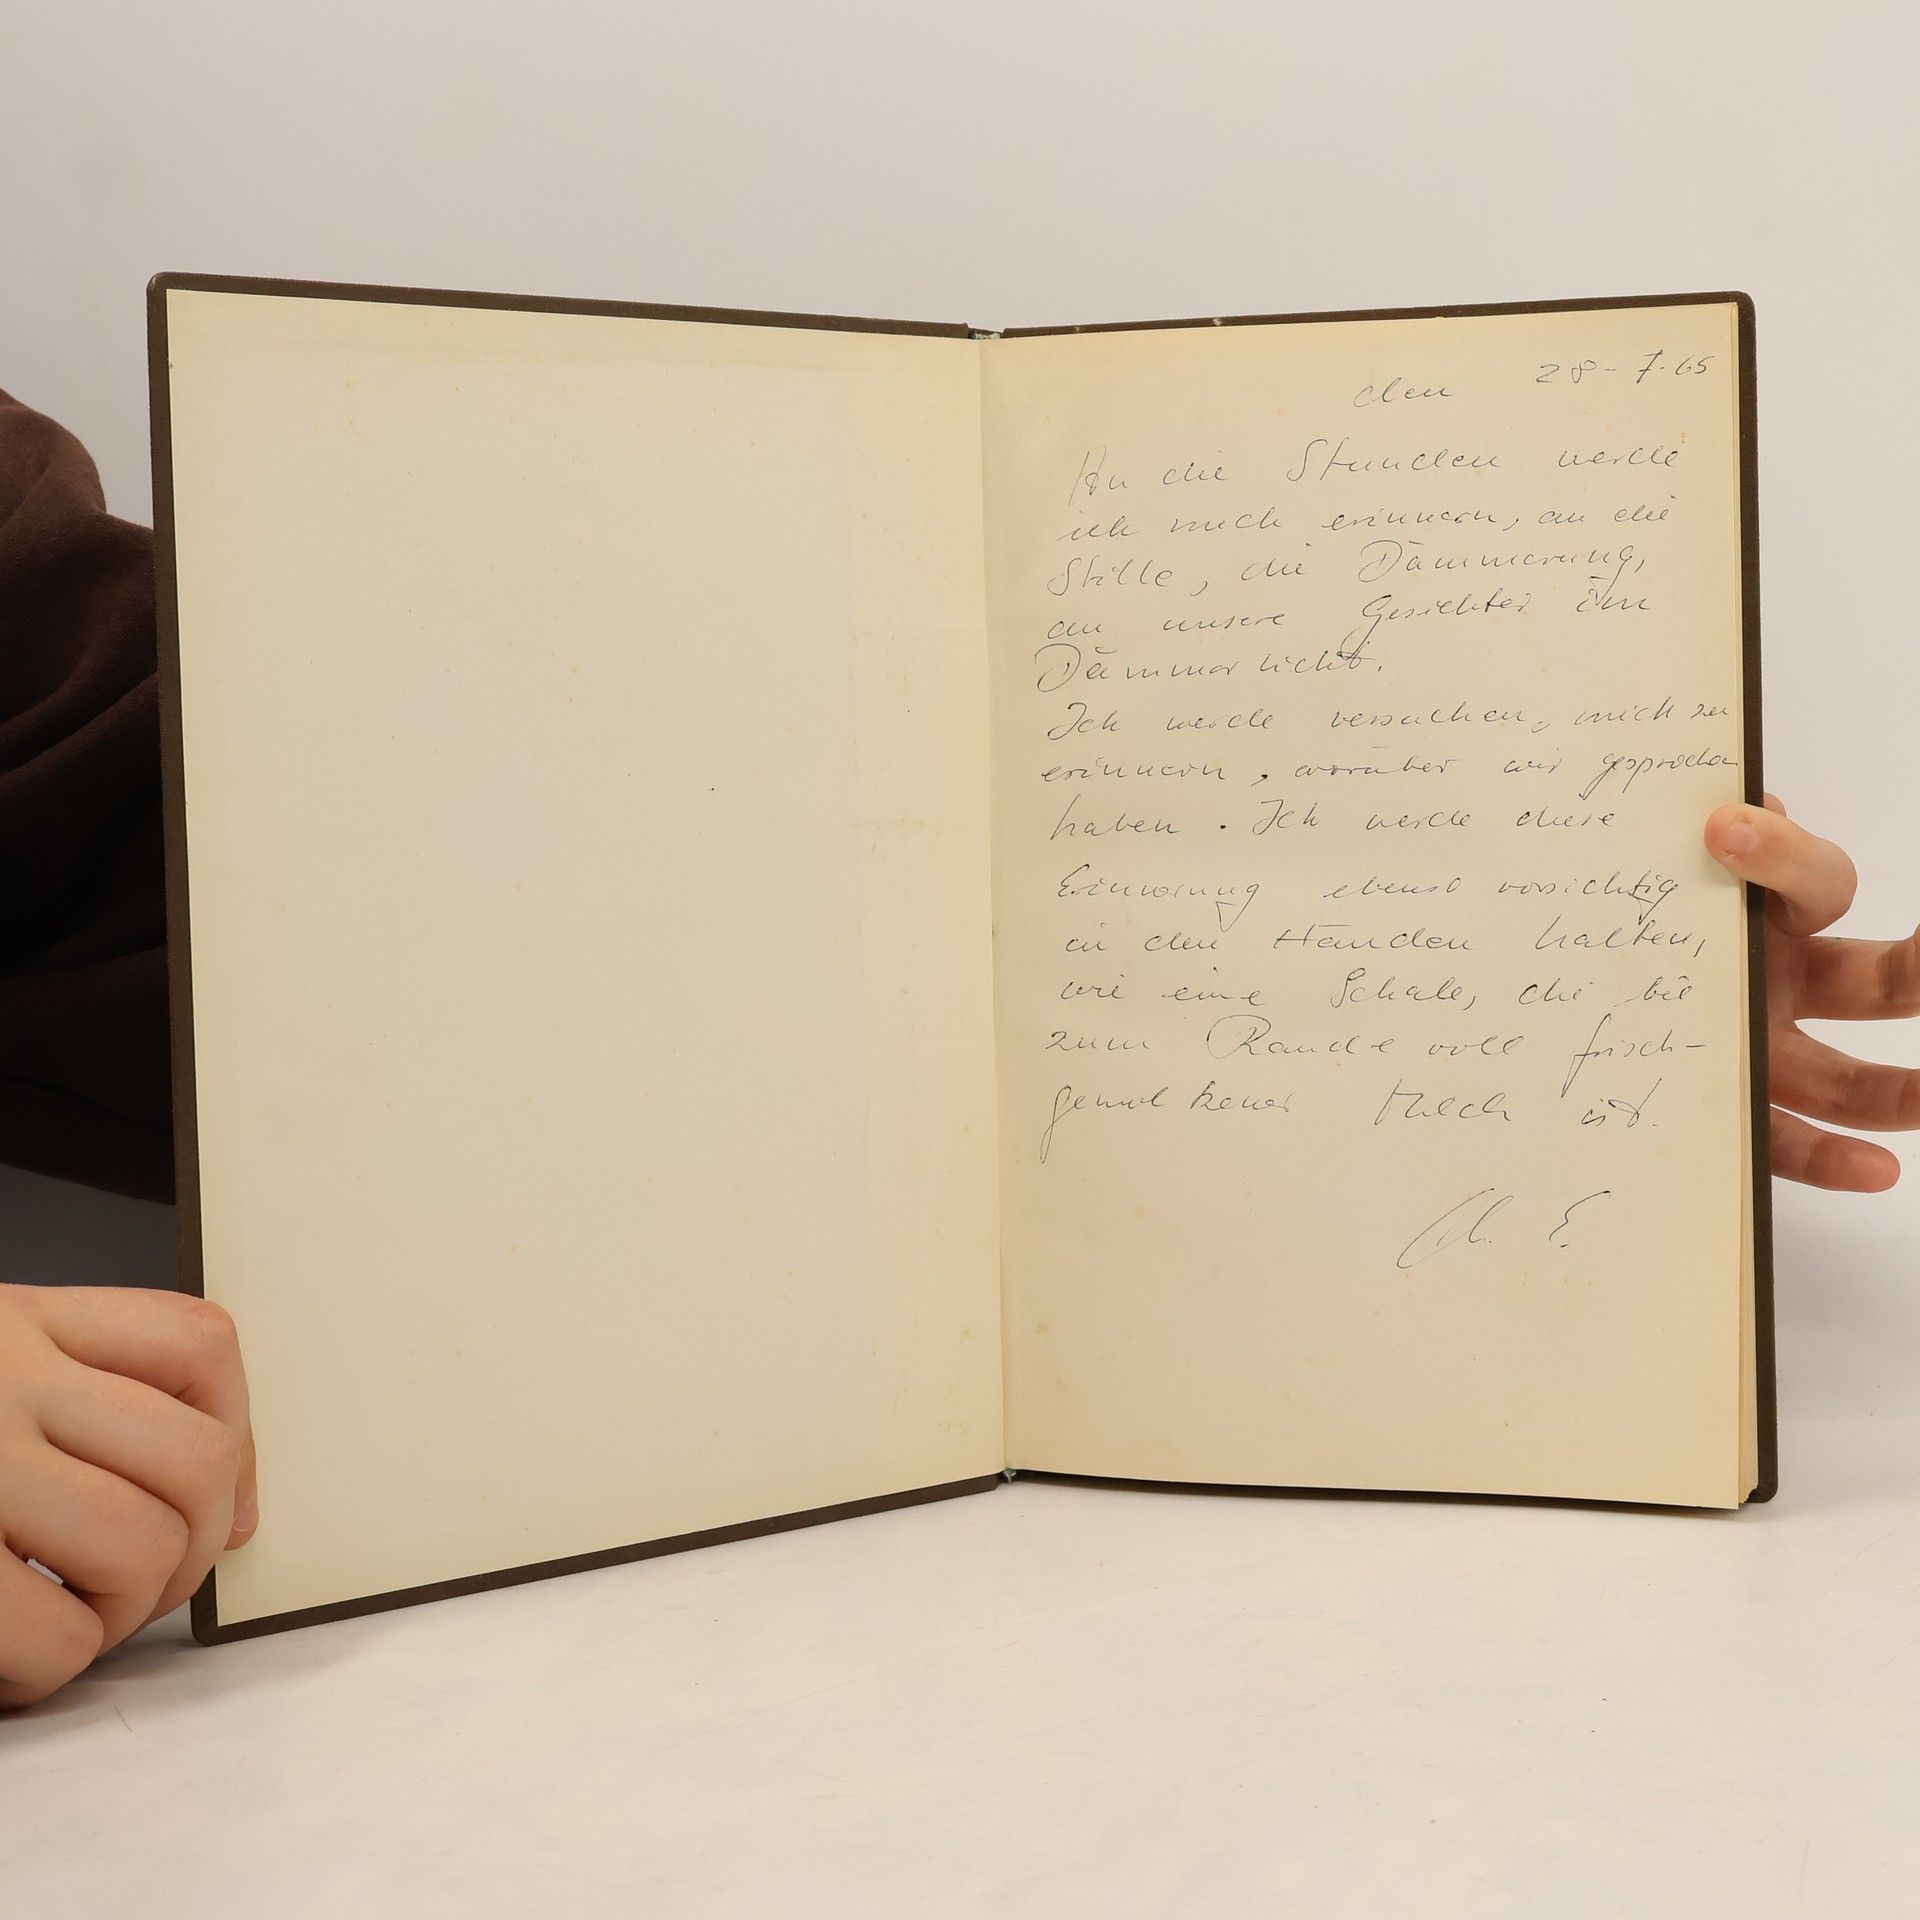 den 28-7.65
An die Stunden werde
ich mich erinnern, an die
Stille, die Dämmerung,
an unsere Gesichter im
Dämmerlicht.
Ich werde versuchen, mich zu
erinnern, worüber wir gesprochen
haben. Ich werde diese
Erinnerung ebenso vorsichtig
in den Händen halten,
wie eine Schale, die bis
zum Rande voll frisch-
gemolkener Milch ist.
E.